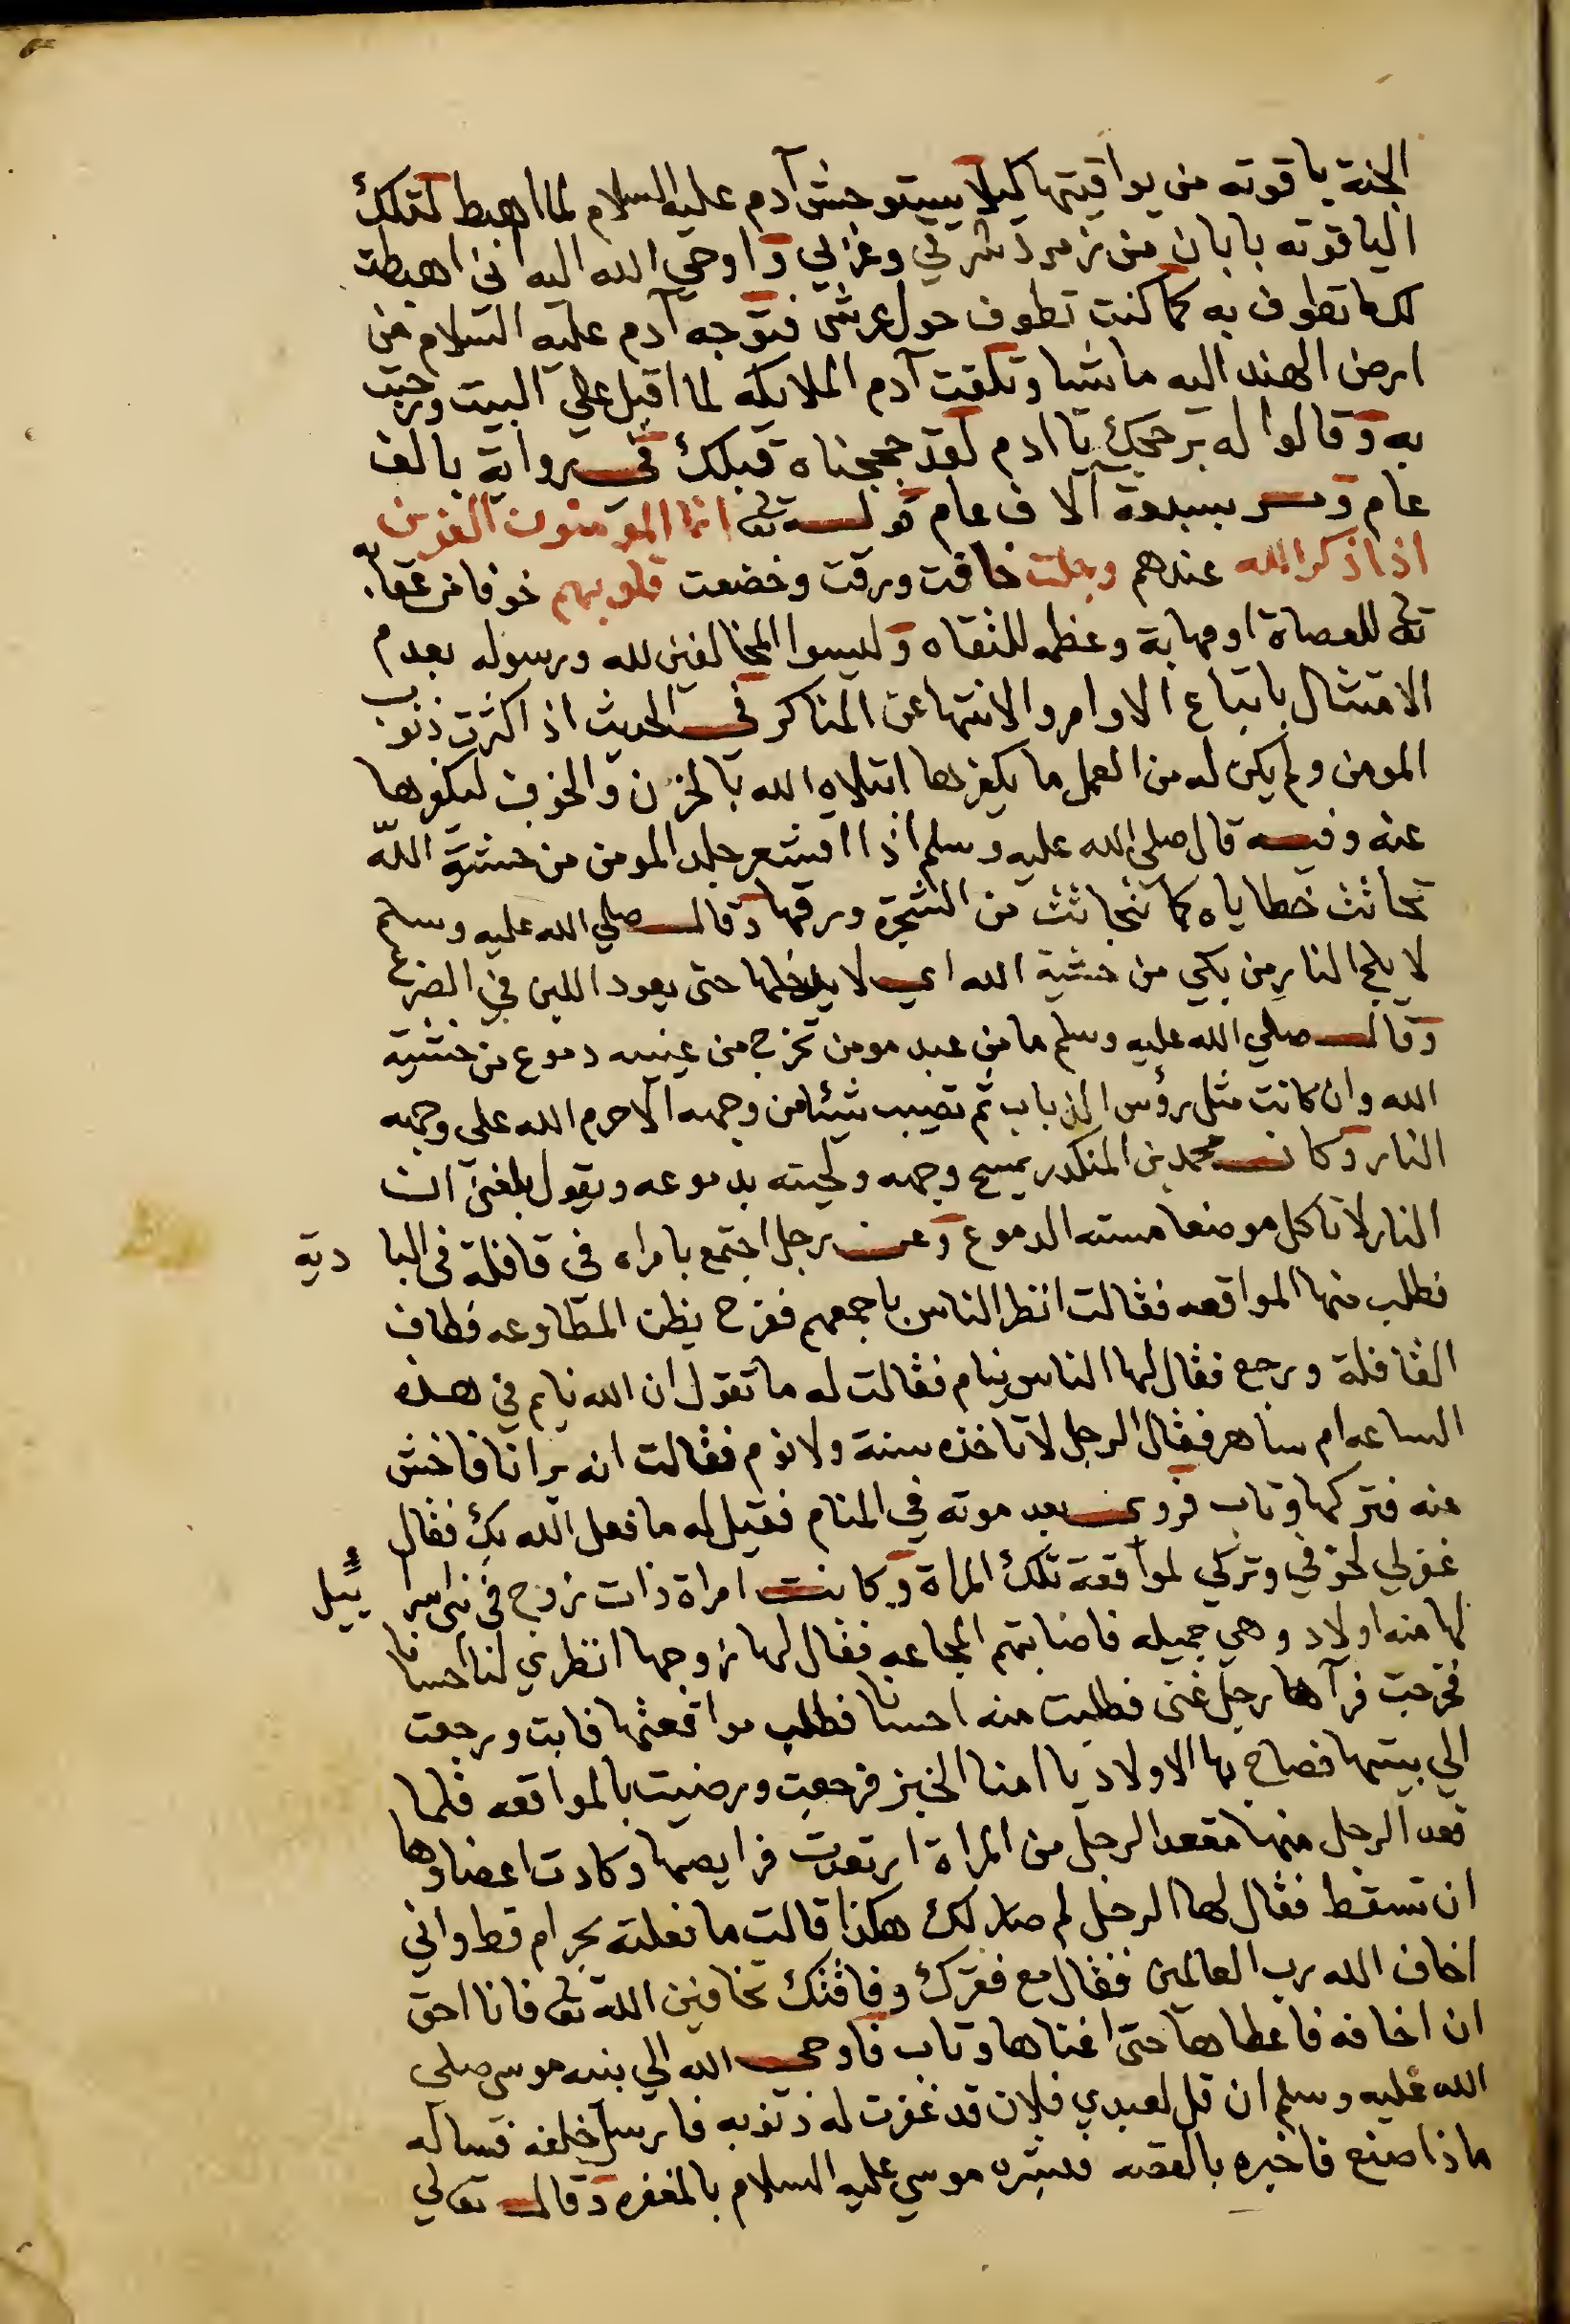 الجنة ياقوته من يواقيتها كيلا يستوحش آدم عليه السلام لما اهبط لتلك
الياقوته بابان من زمرد شرقي وغربي واوحي الله اليه اني اهبطت
لك ما تطوف به كما كنت تطوف حول عرشي فتوجه آدم عليه السلام من
ارض الهند اليه ماشيا وتلقت آدم الملايكه لما اقبل علي البيت ورحبت
به وقالوا له برحجك يا ادم لقد حججناه قبلك في رواية بالف
عام وسـر بسبعة آلاف عام قولـه تعالى انما المومنون الذين
اذا ذكر الله عندهم وجلت خافت ورقت وخضعت قلوبهم خوفا من عقابه
تعالى للعصاة او مهابة وعظمه للثقاه وليسوا المخالفين لله ورسوله بعدم
الامتثال باتباع الاوامر والانتها عن المناكر في الحديث اذ اكثرت ذنوب
المومن ولم يكن له من العمل ما يكفرها ابتلاه الله بالحزن والخوف ليكفرها
عنه وفيه قال صلي الله عليه وسلم اذا اقشعر جلد المومن من خشية الله
تحاثت خطاياه كما تتحاثث من الشجرة ورقها وقال صلي الله عليه وسلم
لا يلج النار من بكي من خشية الله اي لا يدخلها حتى يعود اللبن في الضرع
وقال صلي الله عليه وسلم ما من عبد مومن تخرج من عينيه دموع من خشية
الله وان كانت مثل رؤس الذباب ثم تصيب شيئا من وجهه الا حرم الله على وجهه
النار وكان محمد بن المنكدر يمسح وجهه ولحيته بدموعه ويقول بلغني ان
النار لا تاكل موضعا مسته الدموع وعن رجل اجتمع بامراه في قافلة في البادية
فطلب منها المواقعه فقالت انظر الناس باجمعهم ففرح يظن المطاوعه فطاف
القافلة ورجع فقال لها الناس نيام فقالت له ما تقول ان الله نايم في هذه
الساعه ام ساهر فقال الرجل لا تاخذه سنة ولا نوم فقالت انه يرانا فاخش
منه فتركها وتاب فروي بعد موته في المنام فقيل له ما فعل الله بك فقال
غفر لي لخوفي وتركي لمواقعة تلك المراة وكانت امراة ذات زوج في بني اسراييل
لها منه اولاد وهي جميله فاصابتهم المجاعه فقال لها زوجها انظري لنا احسانا
فخرجت فرآها رجل غني فطلبت منه احسانا فطلب مواقعتها فابت ورجعت
الي بيتها فصاح بها الاولاد يا امنا الخبز فرجعت ورضيت بالمواقعه فلما
قعد الرجل منها مقعد الرجل من المراة ارتعدت فرايصها وكادت اعضاوها
ان تسقط فقال لها الرجل لم صار لك هكذا قالت ما فعلته بحرام قط واني
اخاف الله رب العالمين فقال مع فقرك وفاقتك تخافين الله تعالى فانا احق
ان اخافه فاعطاها حتى اغناها وتاب فاوحى الله الي بنيه موسى صلي
الله عليه وسلم ان قل لعبدي فلان قد غفرت له ذنوبه فارسل خلفه فساله
ماذا صنع فاخبره بالقصه فبشره موسي عليه السلام بالمغفره وقال تعالي